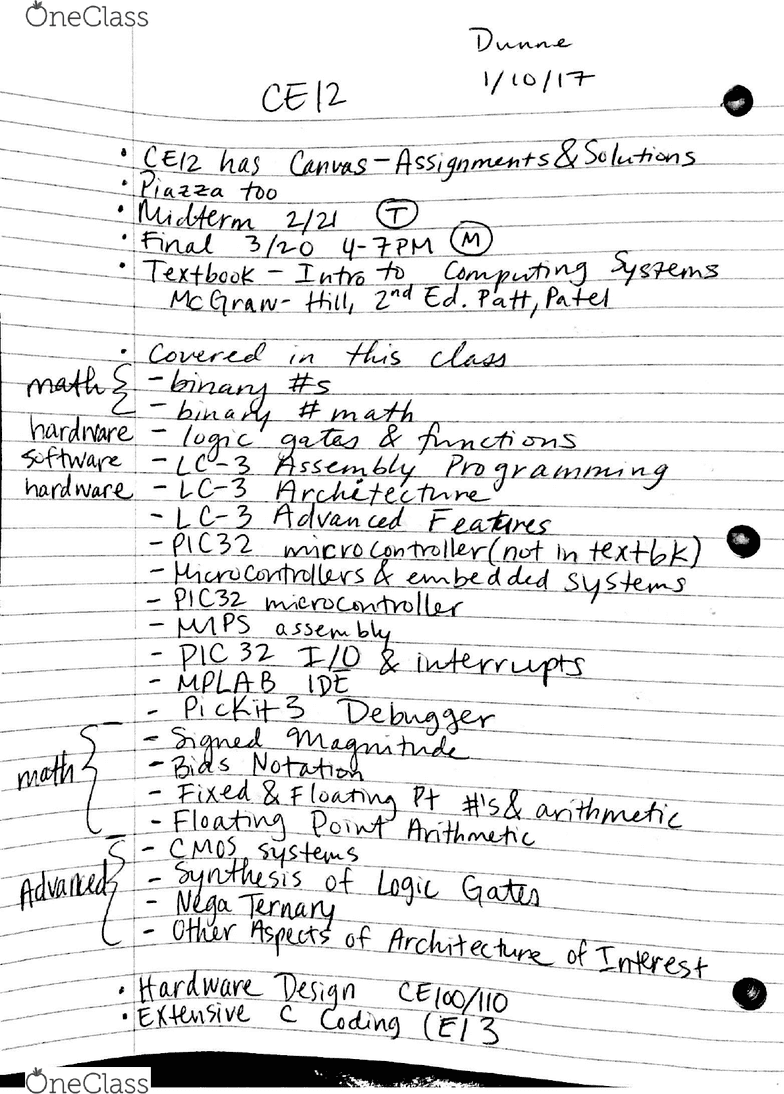 OneClass
Dunne
1/10/17
CE12
• CE12 has Canvas - Assignments & Solutions
• Piazza too
• Midterm 2/21 (T)
• Final 3/20 4-7PM (M)
• Textbook - Intro to Computing Systems
McGraw-Hill, 2nd Ed. Patt, Patel
• Covered in this class
math { - binary #s
- binary # math
hardware - logic gates & functions
software - LC-3 Assembly Programming
hardware - LC-3 Architecture
- LC-3 Advanced Features
- PIC32 microcontroller (not in textbk)
- Microcontrollers & embedded systems
- PIC32 microcontroller
- MIPS assembly
- PIC 32 I/O & interrupts
- MPLAB IDE
- PicKit 3 Debugger
math { - Signed Magnitude
- Bias Notation
- Fixed & Floating Pt #'s & arithmetic
- Floating Point Arithmetic
Advanced { - CMOS systems
- Synthesis of Logic Gates
- Nega Ternary
- Other Aspects of Architecture of Interest
• Hardware Design CE100/110
• Extensive C Coding CE13
OneClass